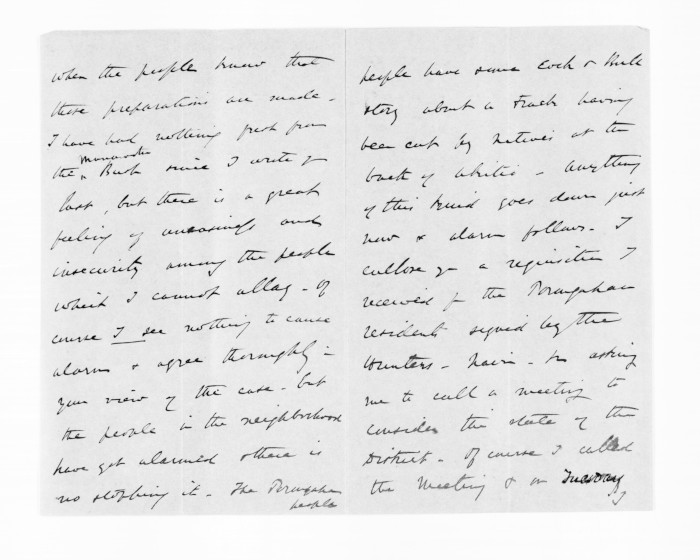 when the people know that
these preparations are made -
I have had nothing fresh from
the Manawatu Bush since I wrote you
last, but there is a great
feeling of uneasiness and
insecurity among the people
which I cannot allay - Of
course I see nothing to cause
alarm & agree thoroughly in
your view of the case - but
the people in the neighborhood
have got alarmed & there is
no stopping it - The Porangahau
people
people have some Cock & Bull
story about a track having
been cut by natives at the
back of - anything
of this kind goes down just
now & alarm follows - I
enclose you a requisition I
received fr the Porangahau
residents signed by the
Hunters - Nairn - &c asking
me to call a meeting to
consider the state of the
District - Of course I called
the Meeting & on Tuesday